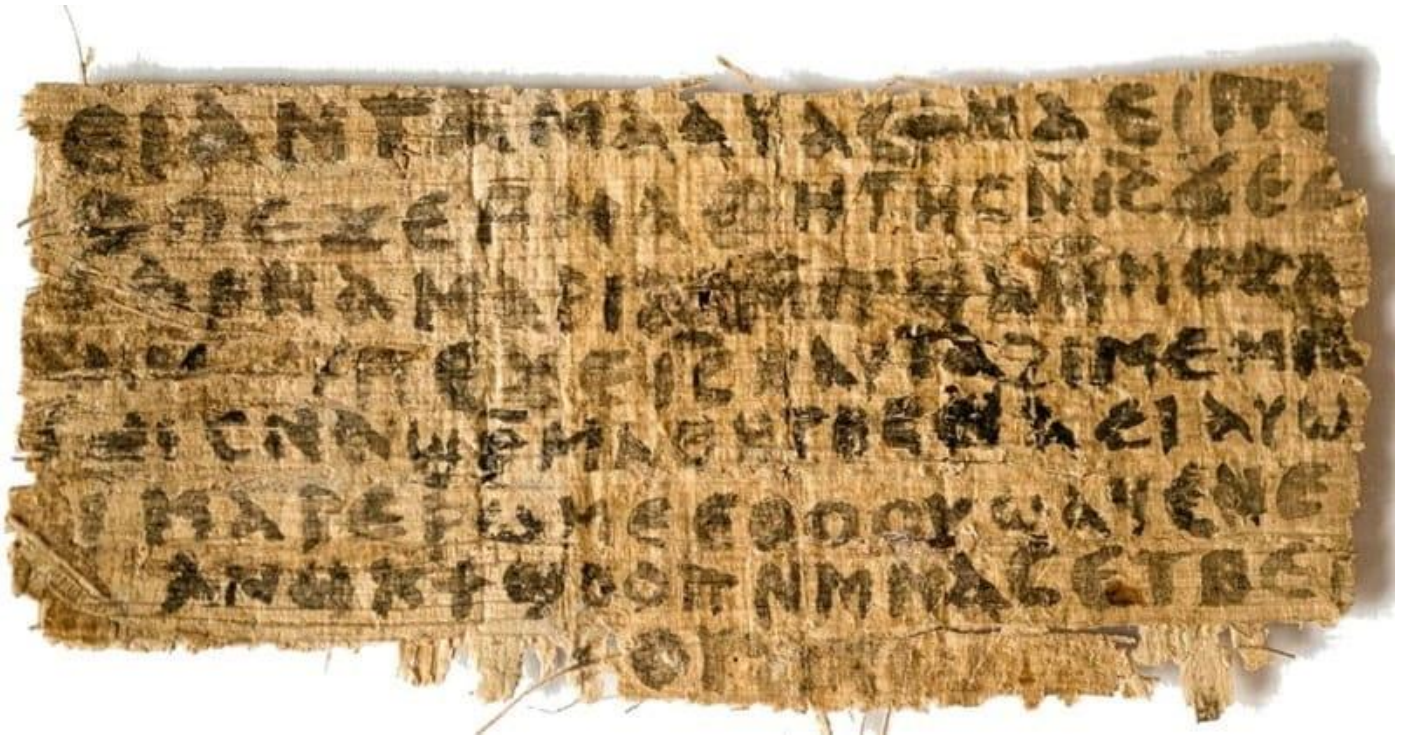 ⲉⲓ ⲁⲛ ⲧⲁⲙⲁⲁⲩ ⲁⲥϯ ⲛⲁⲉⲓ ⲡⲱ
ⲥ ⲡⲉϫⲉ ⲙⲙⲁⲑⲏⲧⲏⲥ ⲛⲓⲥ ϫⲉ ⲥ
ⲁⲣⲛⲁ ⲙⲁⲣⲓⲁⲙ ⲙⲡϣⲁ ⲙⲙⲟⲥ ⲁ
ⲡⲉϫⲉ ⲓⲥ ⲛⲁⲩ ⲧⲁϩⲓⲙⲉ ⲙⲛ
ⲥⲛⲁϣ ⲣⲙⲁⲑⲏⲧⲏⲥ ⲛⲁⲉⲓ ⲁⲩⲱ
ⲓ ⲙⲁⲣⲉ ⲣⲱⲙⲉ ⲉⲑⲟⲟⲩ ϣⲁϥⲉ ⲛⲉ
ⲁⲛⲟⲕ ϯϣⲟⲟⲡ ⲛⲙⲙⲁⲥ ⲉⲧⲃⲉ